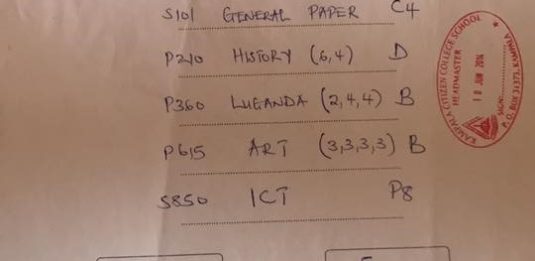 S101 GENERAL PAPER C4
P210 HISTORY (6,4) D
P360 LUGANDA (2,4,4) B
P615 ART (3,3,3,3) B
S850 ICT P8
KAMPALA CITIZEN COLLEGE SCHOOL
HEADMASTER
10 JUN 2014
SIGN:
P.O. BOX 31373, KAMPALA